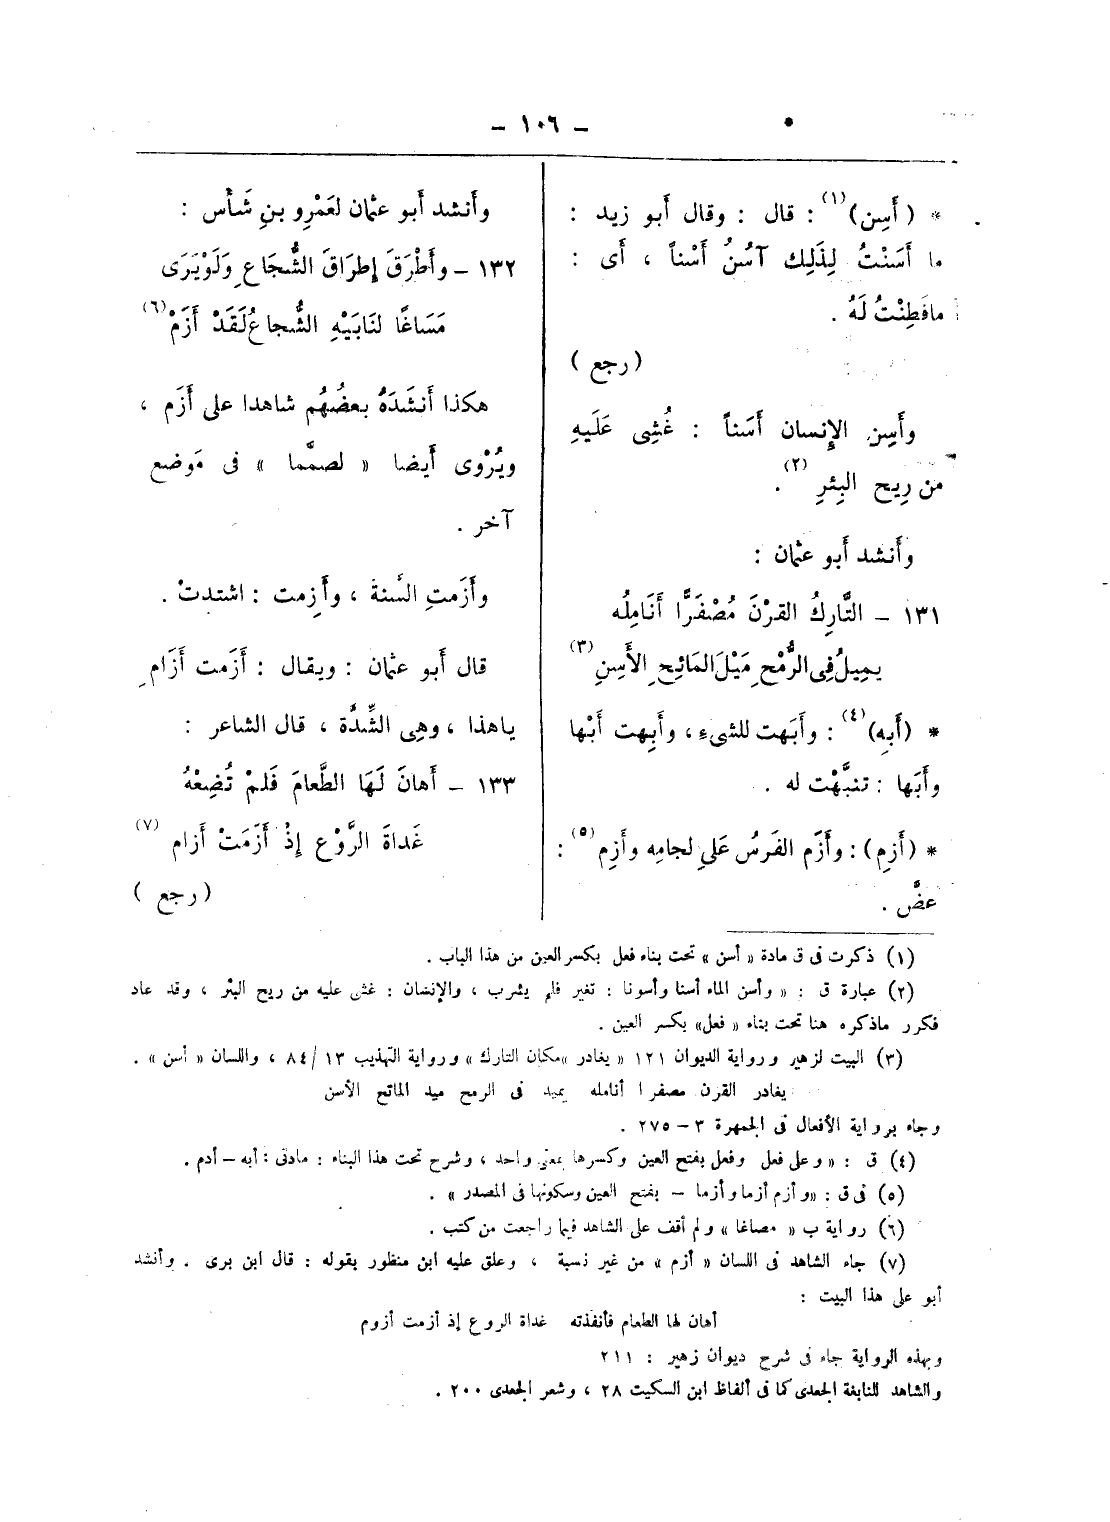 – ١٠٦ –
* (أَسِن)(١) : قال : وقال أَبو زيد :
ما أَسَنْتُ لِذَلِك آسُنُ أَسْناً ، أَى :
مافَطِنْتُ لَهُ .
(رجع)
وأَسِن الإِنسان أَسَناً : غُشِى عَلَيهِ
من رِيح البِئرِ (٢) .
وأَنشد أَبو عثمان :
١٣١ – التَّارِكُ القرْنَ مُصْفَرًّا أَنَامِلُه
يمِيلُ فِى الرُّمْحِ مَيْلَ المَائِحِ الأَسِنِ (٣)
* (أَبِه)(٤) : وأَبَهت للشىءِ ، وأَبِهت أَبْها
وأَبَها : تنبَّهْت له .
* (أَزِم) : وأَزَم الفَرَسُ عَلَى لجامِه وأَزِم (٥) :
عضَّ .
وأَنشد أَبو عثمان لعَمْرِو بنِ شَأْس :
١٣٢ – وأَطْرَقَ إِطرَاقَ الشُّجَاعِ وَلَوْ يَرَى
مَسَاغًا لنَابَيْهِ الشُّجاعُ لَقَدْ أَزَمْ (٦)
هكذا أَنشَدَهُ بعضُهُم شاهدا على أَزَم ،
ويُرْوى أَيضا « لصمَّما » فى مَوضع
آخر .
وأَزَمتِ السَّنةُ ، وأَزِمت : اشتدتْ .
قال أَبو عثمان : ويقال : أَزَمت أَزَامِ
ياهذا ، وهِى الشِّدَّة ، قال الشاعر :
١٣٣ – أَهانَ لَهَا الطَّعامَ فَلمْ تُضِعْهُ
غَداةَ الرَّوْعِ إِذْ أَزَمَتْ أَزام (٧)
(رجع)
(١) ذكرت فى ق مادة « أسن » تحت بناء فعل بكسر العين من هذا الباب .
(٢) عبارة ق : « وأسن الماء أسنا وأسونا : تغير فلم يشرب ، والإنسان : غشى عليه من ريح البئر ، وقد عاد
فكرر ماذكره هنا تحت بناء « فعل» بكسر العين .
(٣) البيت لزهير ورواية الديوان ١٢١ « يغادر »مكان التارك » ورواية التهذيب ١٣/ ٨٤ ، واللسان « أسن » .
يغادر القرن مصفرا أنامله يميد فى الرمح ميد المائح الأسن
وجاء برواية الأفعال فى الجمهرة ٣ – ٢٧٥ .
(٤) ق : « وعلى فعل وفعل بفتح العين وكسرها بمعنى واحد ، وشرح تحت هذا البناء : مادتى : أبه – أدم .
(٥) فى ق : «وأزم أزما وأزما – بفتح العين وسكونها فى المصدر » .
(٦) رواية ب « مصاغا » ولم أقف على الشاهد فيما راجعت من كتب .
(٧) جاء الشاهد فى اللسان « أزم » من غير نسبة ، وعلق عليه ابن منظور بقوله : قال ابن برى . وأنشد
أبو على هذا البيت :
أهان لها الطعام فأنفذته غداة الروع إذ أزمت أزوم
وبهذه الرواية جاء فى شرح ديوان زهير : ٢١١
والشاهد للنابغة الجعدى كما فى ألفاظ ابن السكيت ٢٨ ، وشعر الجعدى ٢٠٠ .